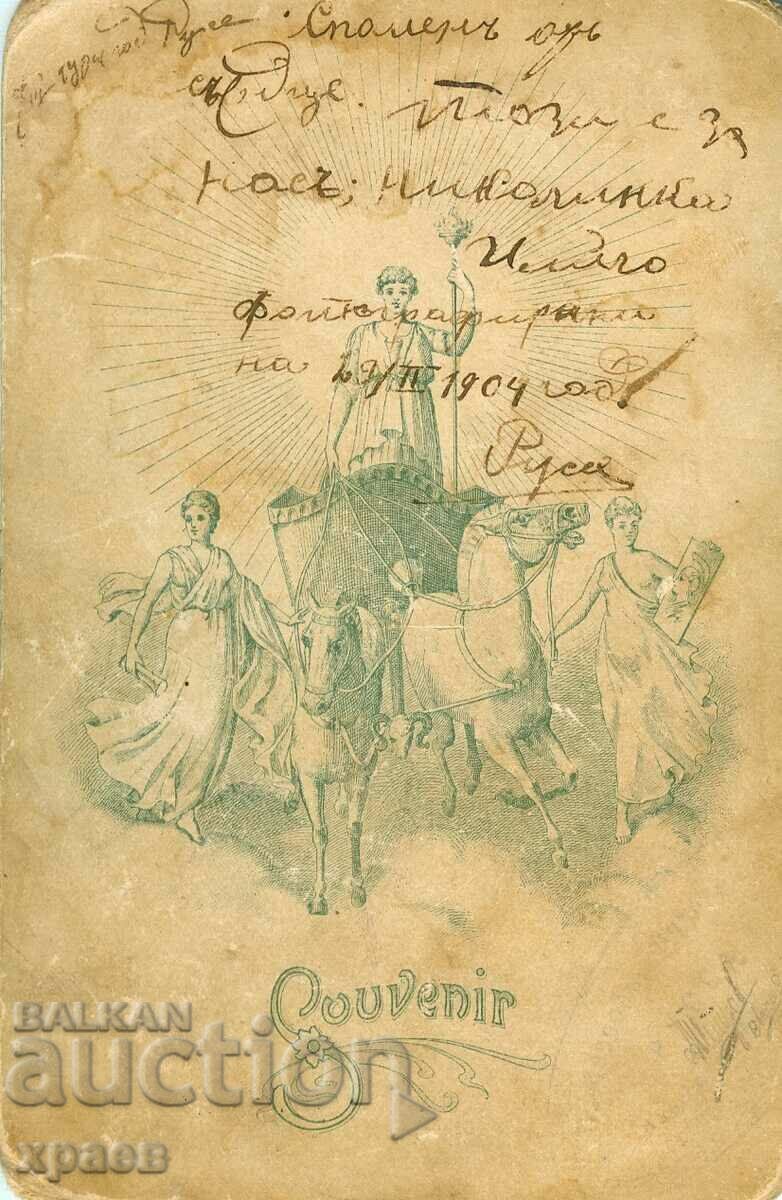 Споменъ отъ
сърдце. Този е за
насъ; Николинка
Илийчо
фотографирани
на 29/II 1904 год.
Русе
Souvenir
BALKAN
auction
храев